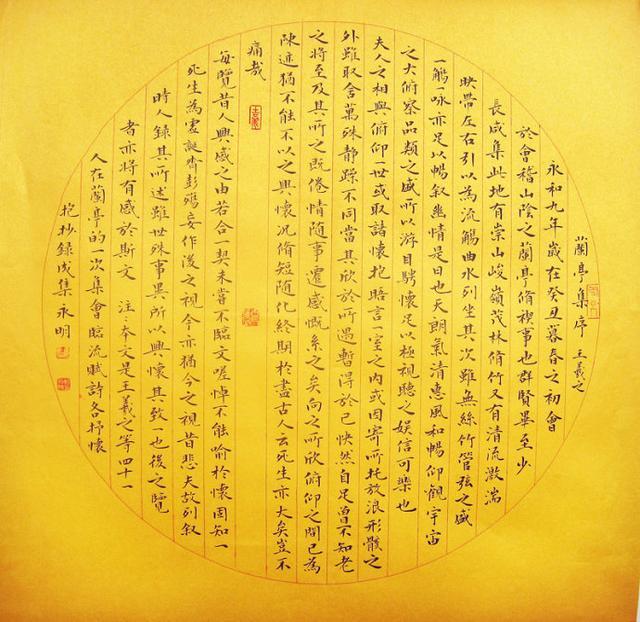 蘭亭集序 王羲之
永和九年歲在癸丑暮春之初會
於會稽山陰之蘭亭脩禊事也群賢畢至少
長咸集此地有崇山峻嶺茂林脩竹又有清流激湍
映帶左右引以為流觴曲水列坐其次雖無絲竹管弦之盛
一觴一咏亦足以暢叙幽情是日也天朗氣清惠風和暢仰觀宇宙
之大俯察品類之盛所以游目騁懷足以極視聽之娱信可樂也
夫人之相與俯仰一世或取諸懷抱晤言一室之内或因寄所托放浪形骸之
外雖取舍萬殊静躁不同當其欣於所遇暫得於己怏然自足曾不知老
之將至及其所之既倦情随事遷感慨系之矣向之所欣俯仰之間已為
陳迹猶不能不以之興懷况脩短随化終期於盡古人云死生亦大矣豈不
痛哉
每覽昔人興感之由若合一契未嘗不臨文嗟悼不能喻於懷固知一
死生為虚誕齊彭殤妄作後之視今亦猶今之視昔悲夫故列叙
時人錄其所述雖世殊事異所以興懷其致一也後之覽
者亦將有感於斯文 注:本文是王羲之等四十一
人在蘭亭的一次集會臨流賦詩各抒懷
抱抄録成集 永明